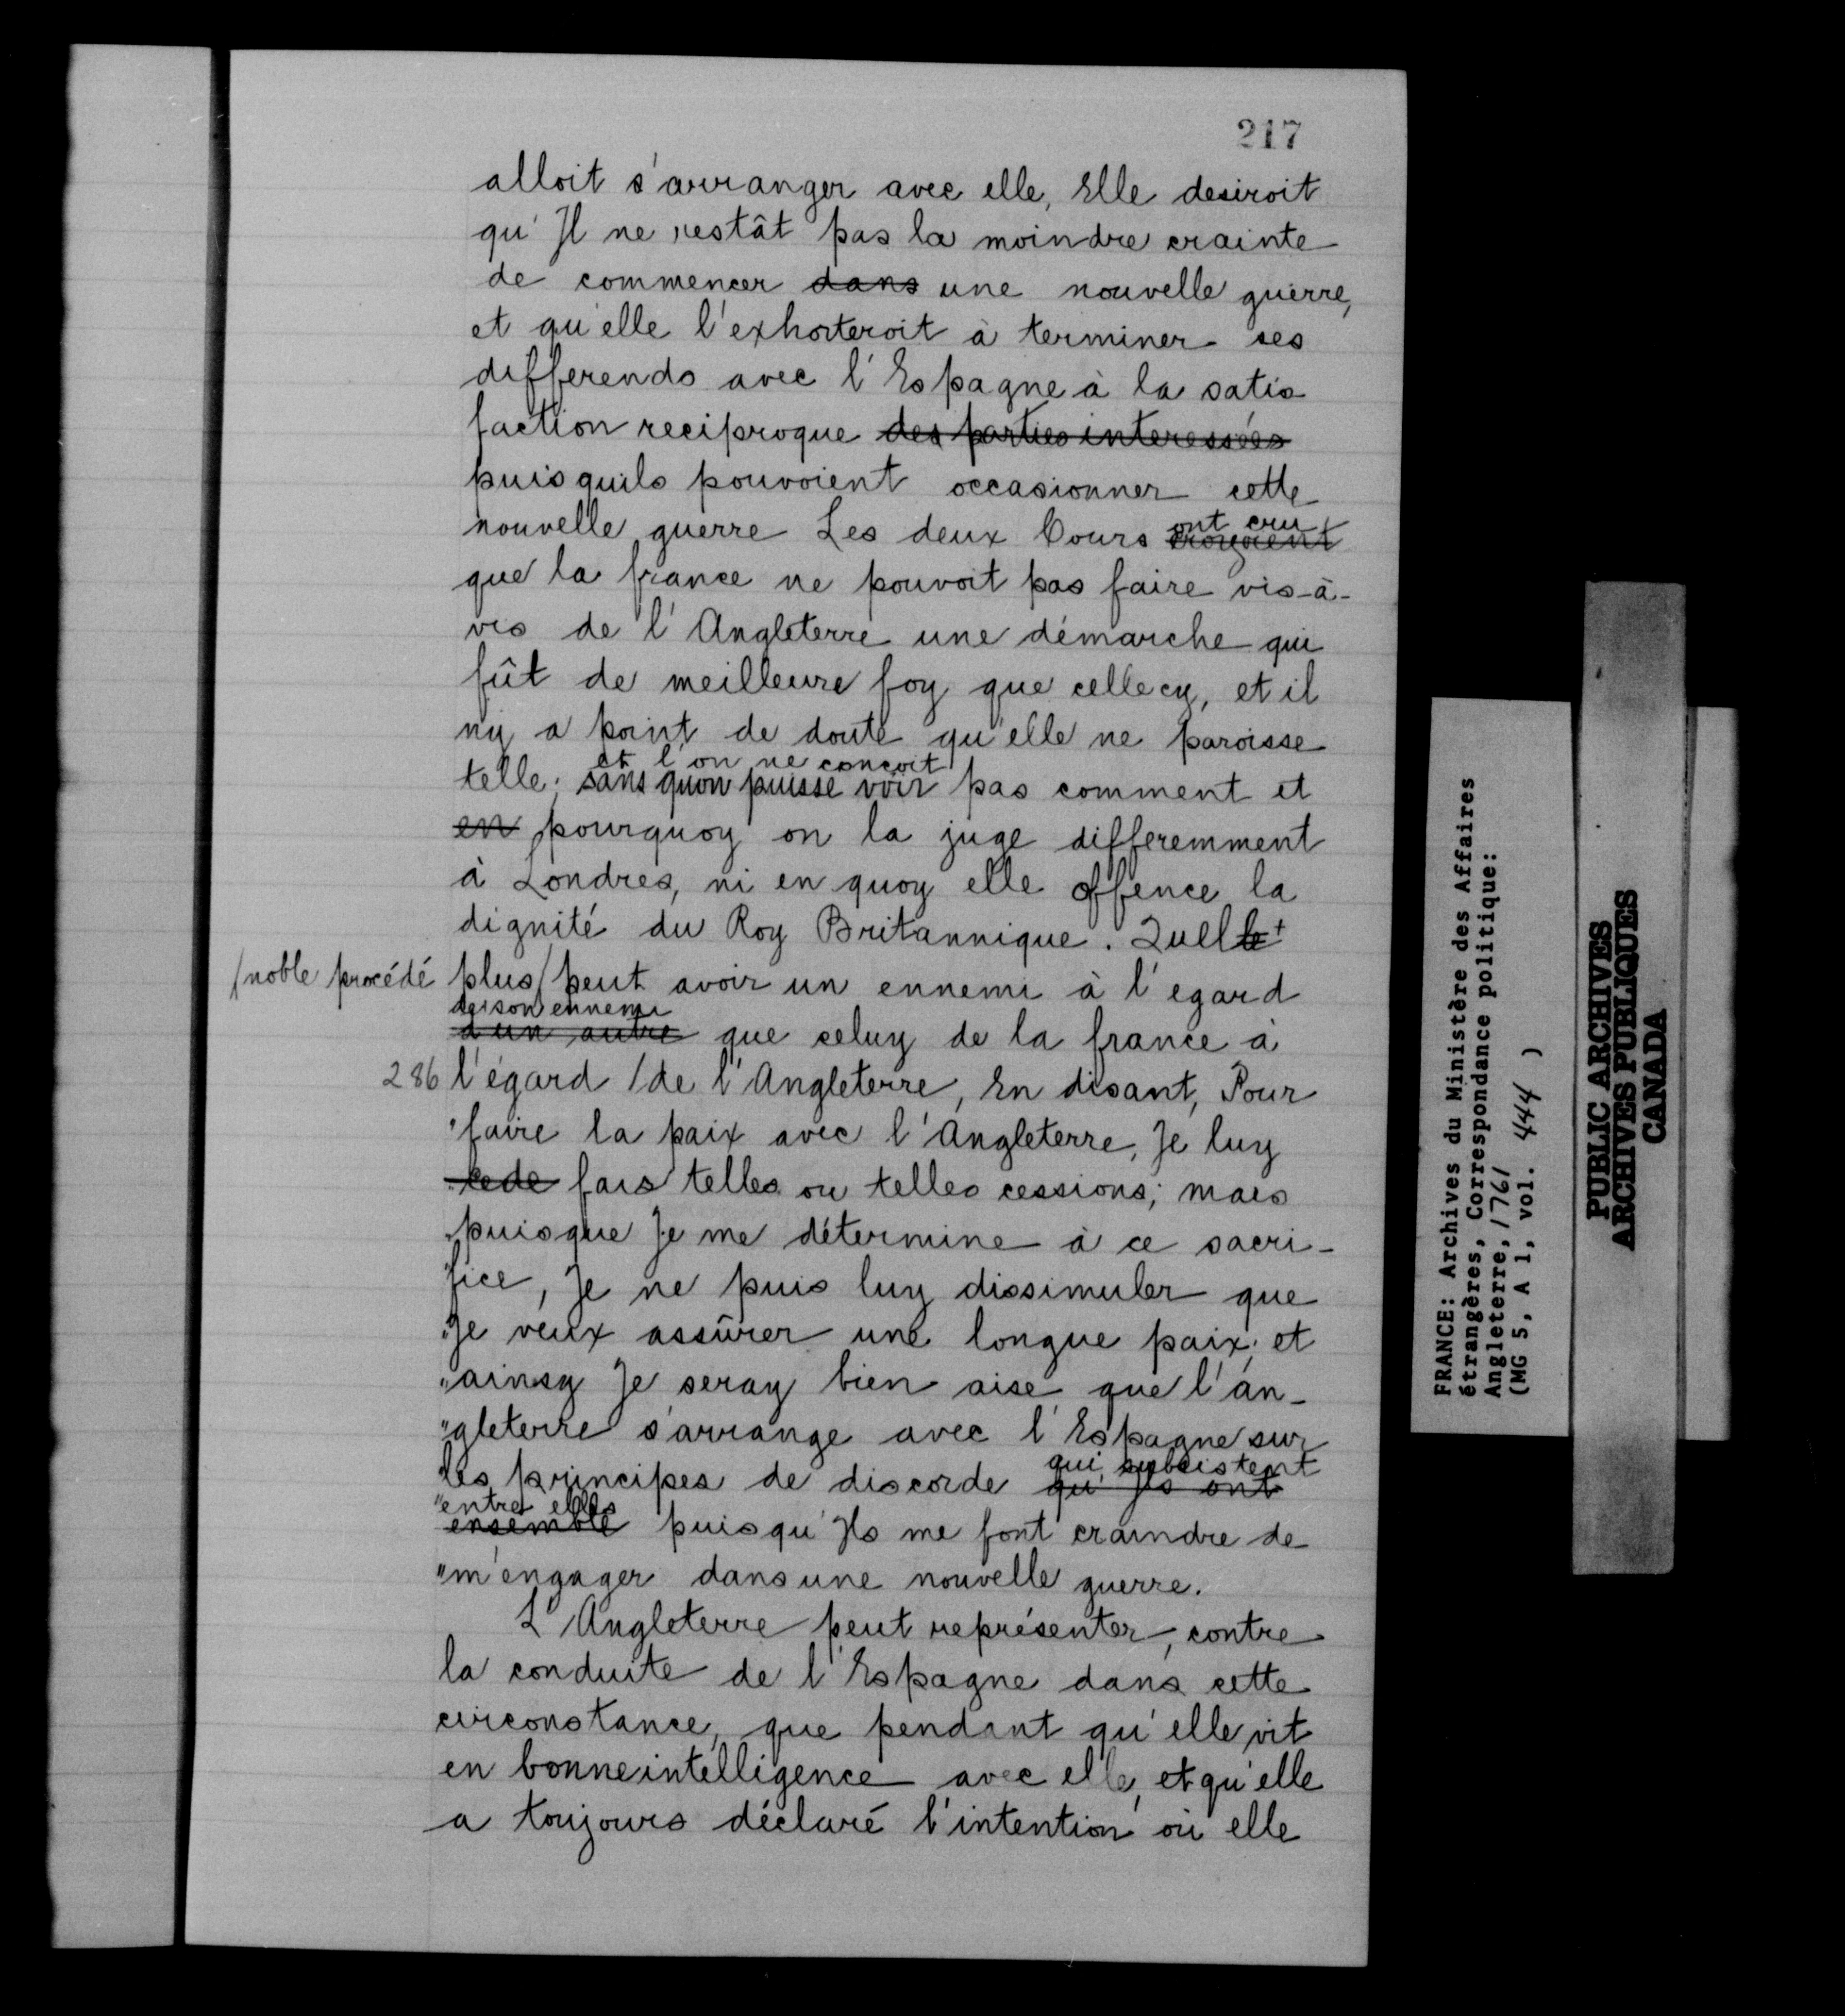 217
alloit s'arranger avec elle, Elle desiroit
qu'Il ne restât pas la moindre crainte
de commencer dans une nouvelle guerre,
et qu'elle l'exhorteroit à terminer ses
differends avec l'Espagne à la satis
faction reciproque des parties interessées
puisquils pouvoient occasionner cette
ont cru
nouvelle guerre Les deux Cours croyoient
que la france ne pouvoit pas faire vis-à-
vis de l'Angleterre une démarche qui
fût de meilleure foy que cellecy, et il
ny a point de doute qu'elle ne paroisse
et l'on ne conçoit
telle; sans quon puisse voir pas comment et
en pourquoy on la juge differemment
à Londres, ni en quoy elle offence la
dignité du Roy Britannique. Quelle +
/noble procédé plus/peut avoir un ennemi à l'egard
de son ennemi
d'un autre que celuy de la france à
286 l'égard /de l'Angleterre, En disant, Pour
"faire la paix avec l'Angleterre, Je luy
"cede fais telles ou telles cessions; mais
"puisque Je me détermine à ce sacri-
"fice, Je ne puis luy dissimuler que
"Je veux assûrer une longue paix; et
"ainsy Je seray bien aise que l'an-
"gleterre s'arrange avec l'Espagne sur
qui subsistent
"les principes de discorde qu'Ils ont
"entre elles
ensemble puisqu'Ils me font craindre de
"m'engager dans une nouvelle guerre.
L'Angleterre peut représenter, contre
la conduite de l'Espagne dans cette
circonstance, que pendant qu'elle vit
en bonne intelligence avec elle, et qu'elle
a toujours déclaré l'intention où elle
FRANCE: Archives du Ministère des Affaires
étrangères, Correspondance politique:
Angleterre, 1761
(MG 5, A 1, vol. 444 )
PUBLIC ARCHIVES
ARCHIVES PUBLIQUES
CANADA